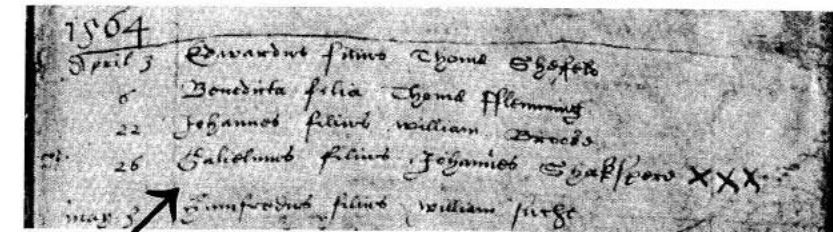 1564
April 3 Edwardus filius Thome Shefeld
6 Benedicta filia Thome fflemmyng
22 Johannes filius william Brooks
26 Gulielmus filius Johannes Shakspere XXX
may 3 filius william